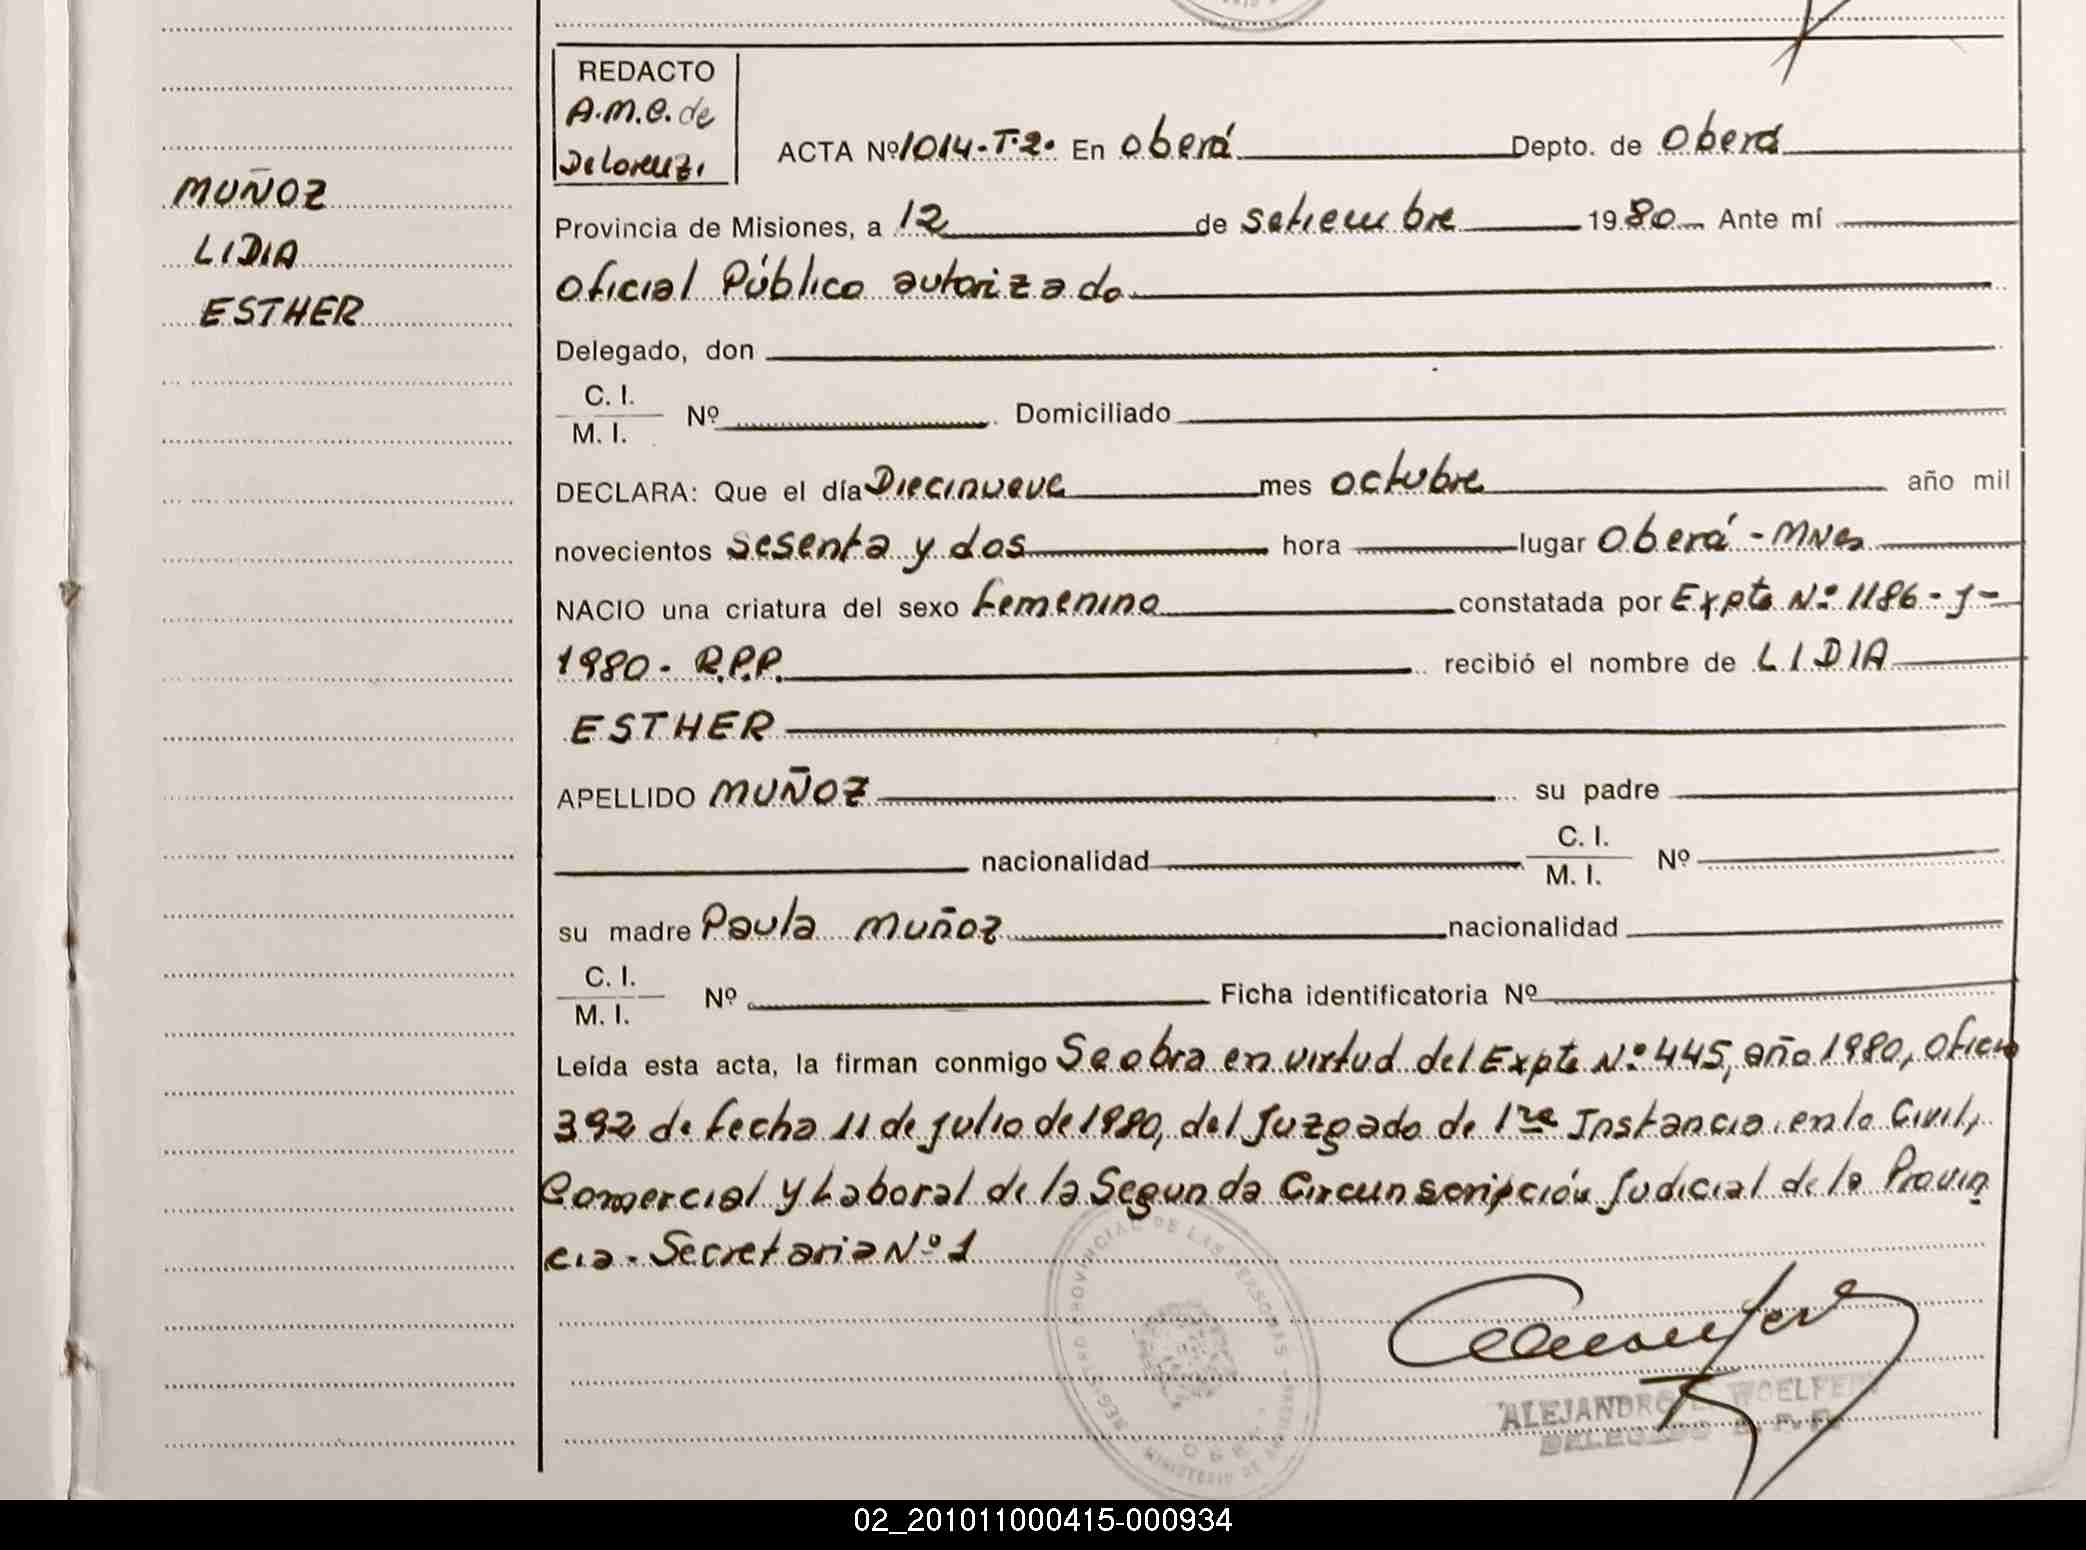 REDACTO
A.M.C. de
De Lorenzi
ACTA Nº 1014-T.2. En Oberá Depto. de Oberá
MUÑOZ
LIDIA
ESTHER
Provincia de Misiones, a 12 de setiembre 1980 Ante mí
Oficial Público autorizado
Delegado, don
C. I.
M. I. Nº Domiciliado
DECLARA: Que el día Diecinueve mes octubre año mil
novecientos sesenta y dos hora lugar Oberá - Mnes
NACIO una criatura del sexo femenino constatada por Expte Nº 1186-J-
1980- R.P.P. recibió el nombre de LIDIA
ESTHER
APELLIDO MUÑOZ su padre
nacionalidad C. I.
M. I. Nº
su madre Paula Muñoz nacionalidad
C. I.
M. I. Nº Ficha identificatoria Nº
Leída esta acta, la firman conmigo Se obra en virtud del Expte Nº 445, año 1980, Oficio
392 de fecha 11 de julio de 1980, del Juzgado de 1ra Instancia en lo Civil,
Comercial y Laboral de la Segunda Circunscripción Judicial de la Provin
cia. Secretaria Nº 1
REGISTRO PROVINCIAL DE LAS PERSONAS
MINISTERIO DE
ALEJANDRO
DELEGADO
02_201011000415-000934